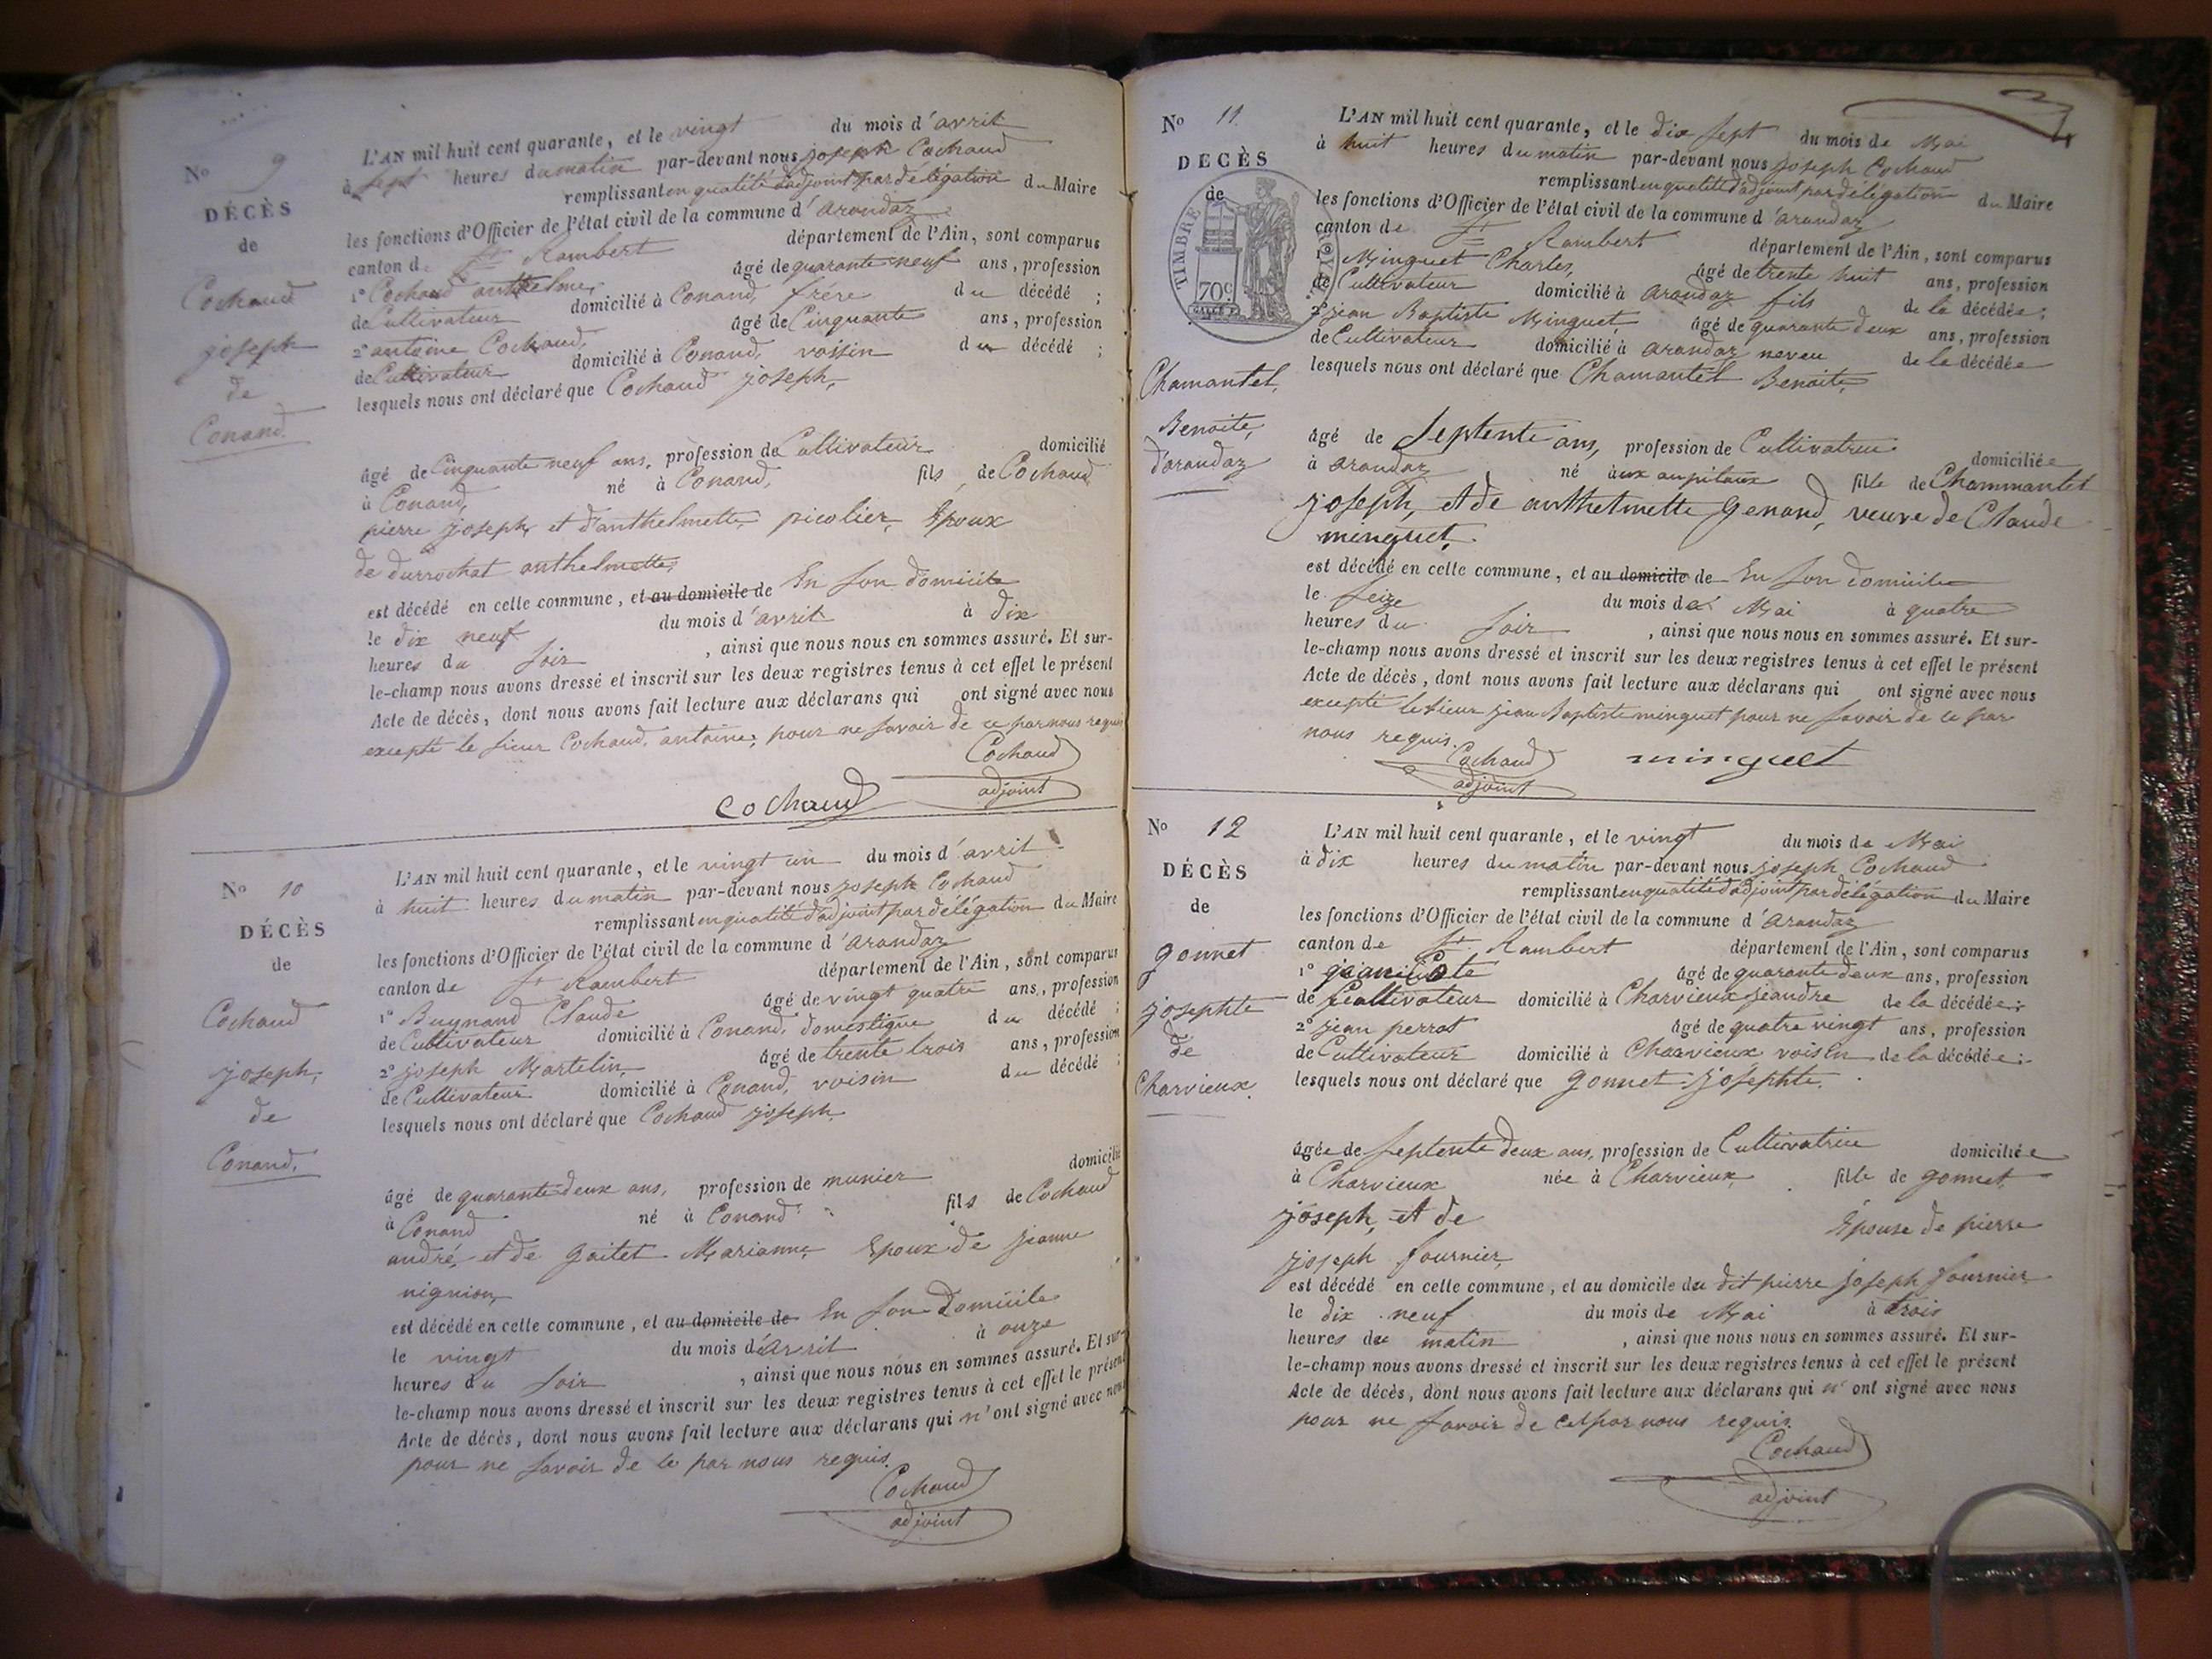 No 9
DÉCÈS
de
Cochaud
joseph
de
Conand.
L'AN mil huit cent quarante, et le vingt du mois d'avril
à sept heures du matin par-devant nous joseph Cochaud
remplissant en qualité d'adjoint par délégation du Maire
les fonctions d'Officier de l'état civil de la commune d'arandaz
canton de St Rambert département de l'Ain, sont comparus
1° Cochaud anthelme, âgé de quarante neuf ans, profession
de Cultivateur domicilié à Conand, frére du décédé ;
2° antoine Cochaud, âgé de Cinquante ans, profession
de Cultivateur domicilié à Conand, voisin du décédé ;
lesquels nous ont déclaré que Cochaud joseph,
âgé de Cinquante neuf ans, profession de Cultivateur domicilié
à Conand, né à Conand, fils de Cochaud
pierre joseph, et d'anthelmette picolier, Epoux
de durrochat anthelmette,
est décédé en cette commune, et au domicile de En son domicile
le dix neuf du mois d'avril à dix
heures du soir , ainsi que nous nous en sommes assuré. Et sur-
le-champ nous avons dressé et inscrit sur les deux registres tenus à cet effet le présent
Acte de décès, dont nous avons fait lecture aux déclarans qui ont signé avec nous
excepté le sieur Cochaud, antoine, pour ne savoir de ce par nous requis
Cochaud
adjoint
cochaud
No 10
DÉCÈS
de
Cochaud
joseph,
de
Conand.
L'AN mil huit cent quarante, et le vingt un du mois d'avril
à huit heures du matin par-devant nous joseph Cochaud
remplissant en qualité d'adjoint par délégation du Maire
les fonctions d'Officier de l'état civil de la commune d'arandaz
canton de St Rambert département de l'Ain, sont comparus
1° Buynand Claude âgé de vingt quatre ans, profession
de Cultivateur domicilié à Conand, domestique du décédé ;
2° joseph Martelin, âgé de trente trois ans, profession
de Cultivateur domicilié à Conand, voisin du décédé ;
lesquels nous ont déclaré que Cochaud joseph,
âgé de quarante deux ans, profession de munier domicilié
à Conand né à Conand fils de Cochaud
andré, et de goitet Marianne Epoux de jeanne
nignion,
est décédé en cette commune, et au domicile de En son Domicile
le vingt du mois d'avril à onze
heures du soir , ainsi que nous nous en sommes assuré. Et sur-
le-champ nous avons dressé et inscrit sur les deux registres tenus à cet effet le présent
Acte de décès, dont nous avons fait lecture aux déclarans qui n'ont signé avec nous
pour ne savoir de ce par nous requis.
Cochaud
adjoint
No 11
DECÈS
de
TIMBRE ROYAL
70c
Chamantel,
Benoite,
d'arandaz
L'AN mil huit cent quarante, et le dix sept du mois de Mai
à huit heures du matin par-devant nous joseph Cochaud
remplissant en qualité d'adjoint par délégation du Maire
les fonctions d'Officier de l'état civil de la commune d'arandaz
canton de St Rambert département de l'Ain, sont comparus
1° Minguet Charles, âgé de trente huit ans, profession
de Cultivateur domicilié à arandaz fils de la décédée ;
2° jean Baptiste Minguet, âgé de quarante deux ans, profession
de Cultivateur domicilié à arandaz neveu de la décédée
lesquels nous ont déclaré que Chamantel Benoite,
âgé de Septente ans, profession de Cultivatrice domiciliée
à arandaz né aux aupitaux fille de Chammantel
joseph, et de anthelmette Genand, veuve de Claude
minguet,
est décédé en cette commune, et au domicile de En son domicile
le seize du mois de Mai à quatre
heures du soir , ainsi que nous nous en sommes assuré. Et sur-
le-champ nous avons dressé et inscrit sur les deux registres tenus à cet effet le présent
Acte de décès, dont nous avons fait lecture aux déclarans qui ont signé avec nous
excepté le sieur jean Baptiste minguet pour ne savoir de ce par
nous requis.
Cochaud minguet
adjoint
No 12
DÉCÈS
de
gonnet
josephte
de
Charvieux.
L'AN mil huit cent quarante, et le vingt du mois de Mai
à dix heures du matin par-devant nous joseph Cochaud
remplissant en qualité d'adjoint par délégation du Maire
les fonctions d'Officier de l'état civil de la commune d'arandaz
canton de St Rambert département de l'Ain, sont comparus
1° âgé de quarante deux ans, profession
de Cultivateur domicilié à Charvieux jeandre de la décédée ;
2° jean perrot âgé de quatre vingt ans, profession
de Cultivateur domicilié à Charvieux voisin de la décédée ;
lesquels nous ont déclaré que gonnet josephte,
âgée de septente deux ans, profession de Cultivatrice domiciliée
à Charvieux née à Charvieux, fille de gonnet,
joseph, et de Epouse de pierre
joseph fournier,
est décédé en cette commune, et au domicile du dit pierre joseph fournier
le dix neuf du mois de Mai à trois
heures du matin , ainsi que nous nous en sommes assuré. Et sur-
le-champ nous avons dressé et inscrit sur les deux registres tenus à cet effet le présent
Acte de décès, dont nous avons fait lecture aux déclarans qui n'ont signé avec nous
pour ne savoir de ce par nous requis.
Cochaud
adjoint